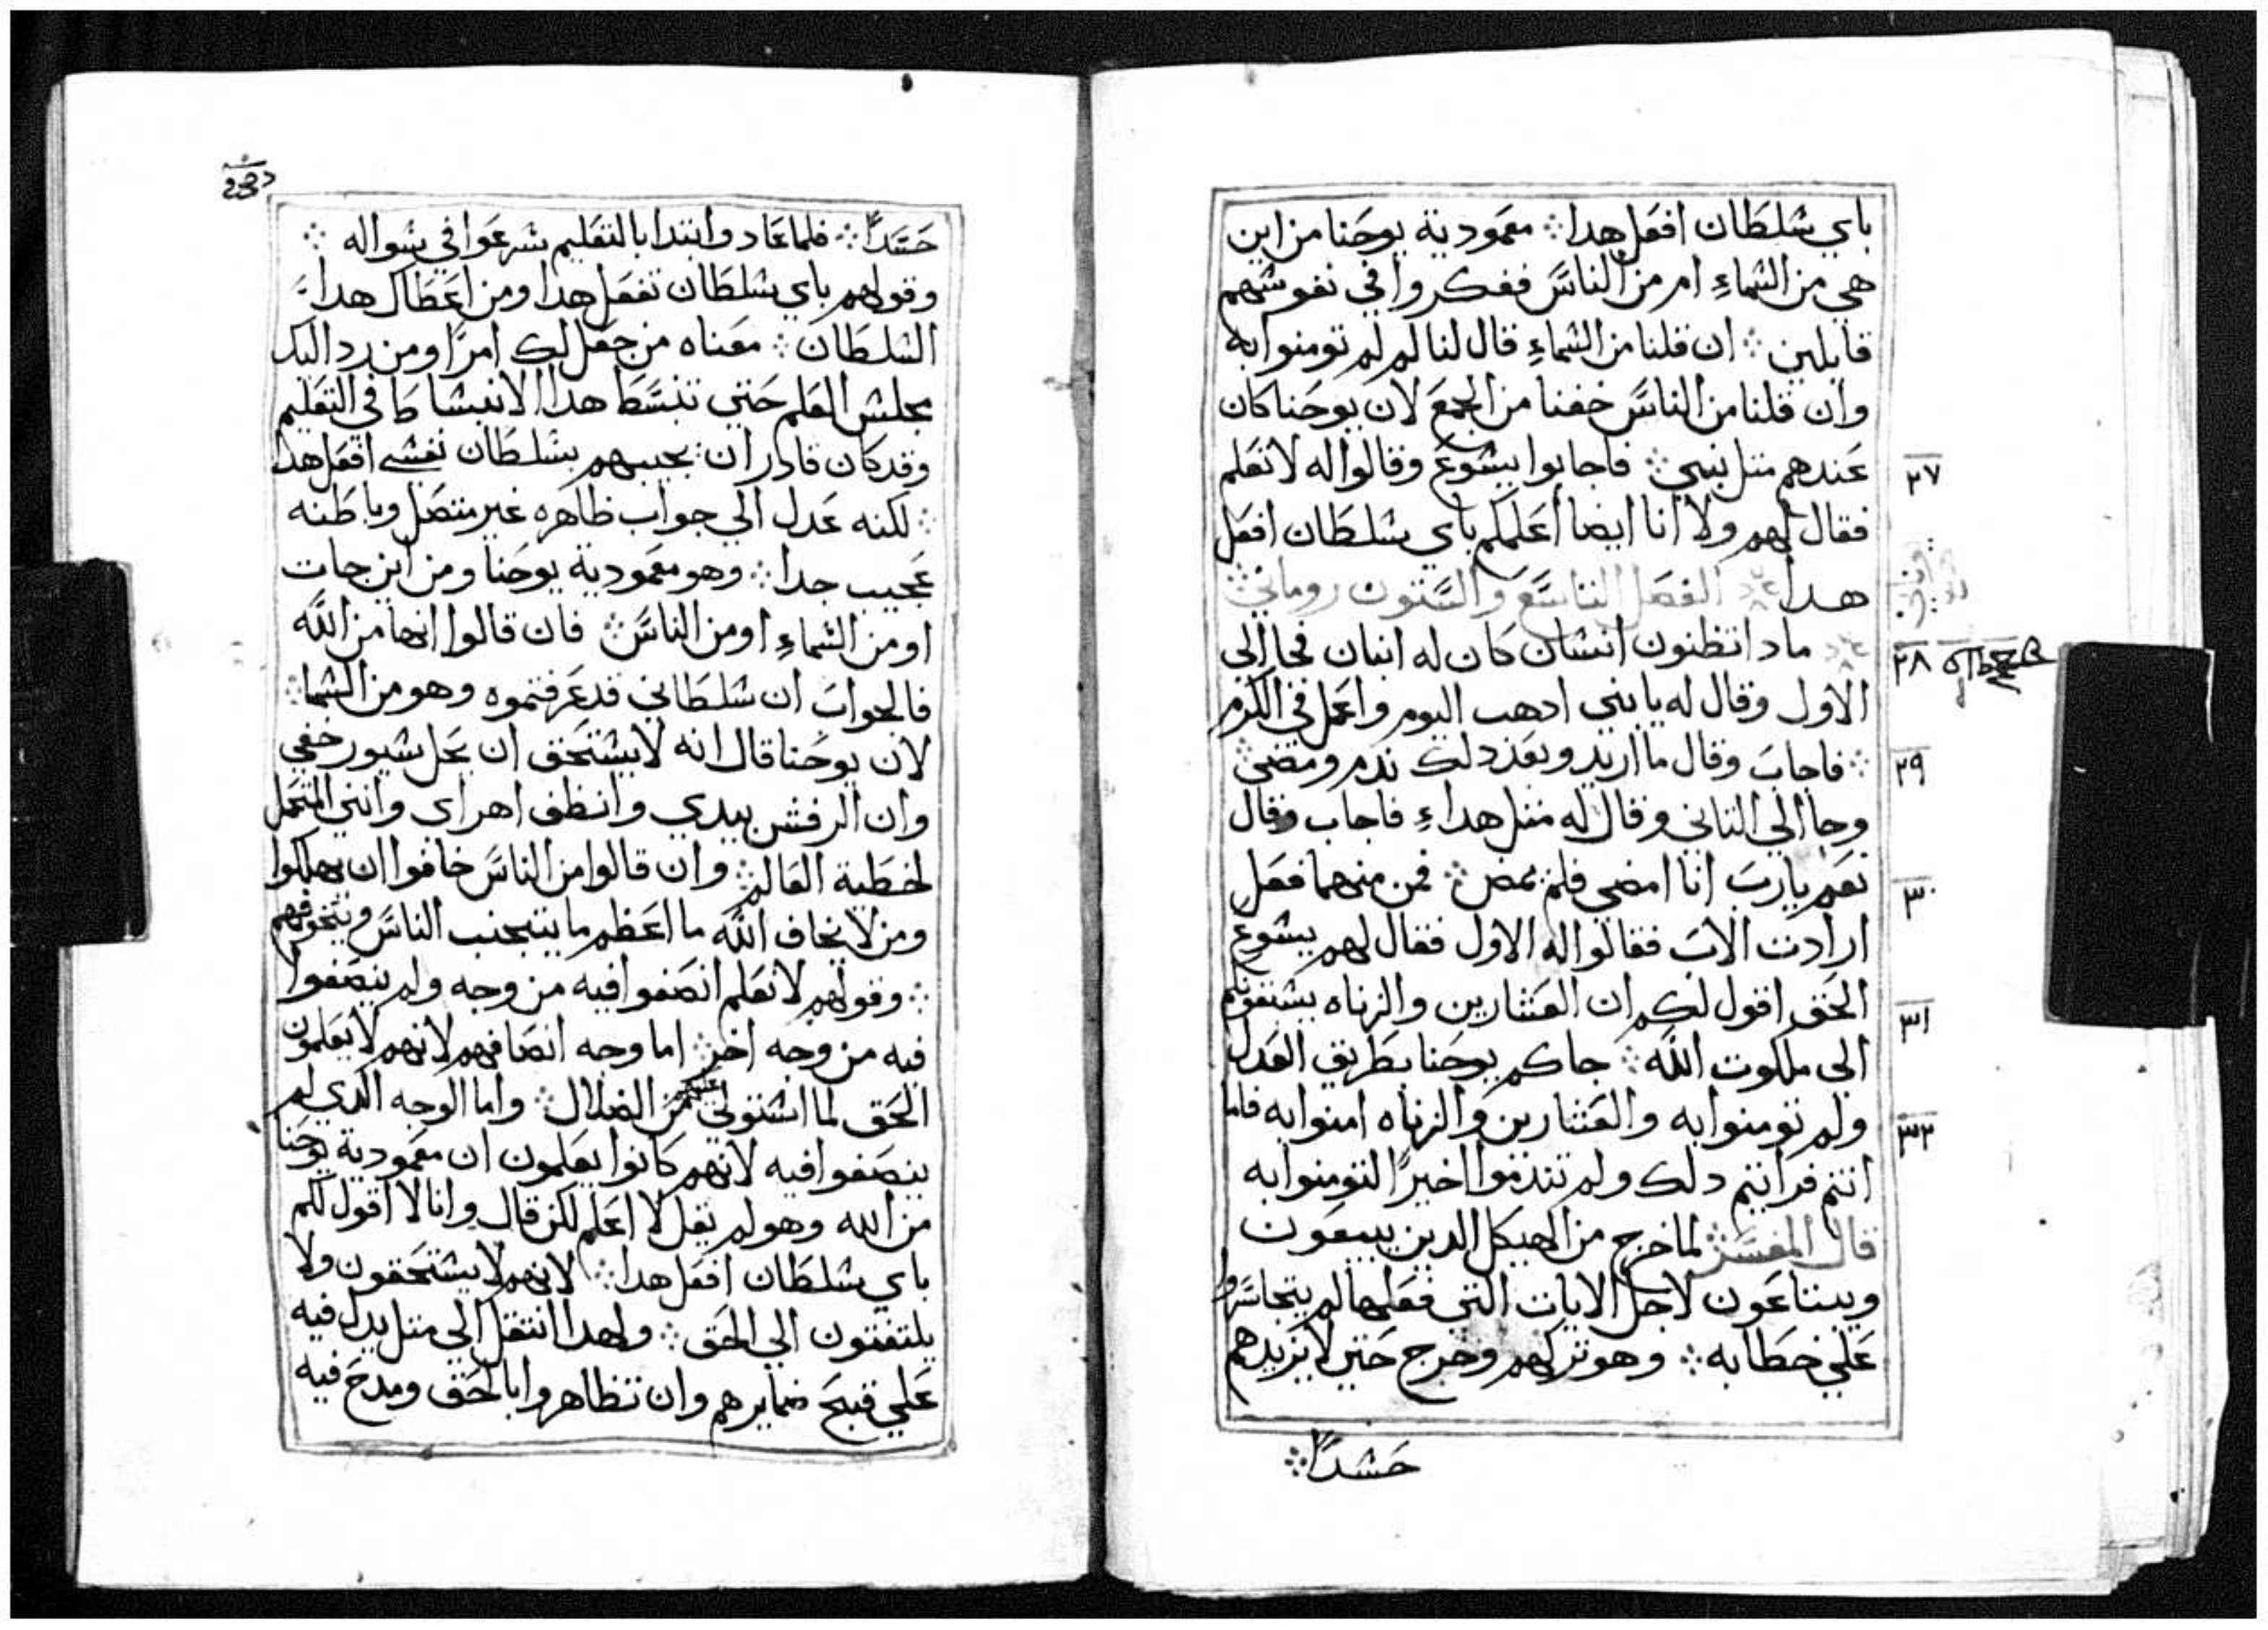 باي سلطان افعل هدا ۞ معمودية يوحنا من اين
هي من السماءِ ام من الناس ففكروا في نفوسهم
قايلين ۞ ان قلنا من السماءِ قال لنا لم لم تومنوا به
وان قلنا من الناس خفنا من الجمع لان يوحنا كان
عندهم متل نبي ۞ فاجابوا يسوع وقالوا له لا نعلم
٢٧
فقال لهم ولا انا ايضا اعلمكم باي سلطان افعل
هدا ۞ الفصل التاسع والستون روماني ۞
مادا تظنون انسان كان له ابنان فجا الي
٢٨
الاول وقال له يا بني ادهب اليوم واعمل في الكرم
۞ فاجاب وقال ما اريد وبعد دلك ندم ومضي ۞
٢٩
وجا الي التاني وقال له متل هداءِ فاجاب وقال
نعم يا رب انا امضي فلم يمض ۞ فمن منهما فعل
٣٠
ارادت الاب فقالوا له الاول فقال لهم يسوع
الحق اقول لكم ان العشارين والزناه يسبقونكم
٣١
الي ملكوت الله ۞ جاكم يوحنا بطريق العدل
ولم تومنوا به والعشارين والزناه امنوا به فاما
٣٢
انتم فرايتم دلك ولم تندموا اخيرًا لتومنوا به
قال المفسر ۞ لما خرج من الهيكل الدين يبيعون
ويبتاعون لاجل الايات التي فعلها لم يتجاسروا
علي خطابه ۞ وهو تركهم وخرج حتي لا يزيدهم
حسدًا ۞
حسدًا ۞ فلما عاد وابتدا بالتعليم شرعوا في سواله ۞
وقولهم باي سلطان تفعل هدا ومن اعطاك هدا
السلطان ۞ معناه من جعل لك امرًا ومن رد اليك
مجلس العلم حتي تنبسط هدا الانبساط في التعليم
وقد كان قادر ان يجيبهم بسلطان نفسي افعل هدا
۞ لكنه عدل الي جواب ظاهره غير متصل وباطنه
عجيب جدا ۞ وهو معمودية يوحنا ومن اين جات
او من السماءِ او من الناس ۞ فان قالوا انها من الله
فالجواب ان سلطاني قد عرفتموه وهو من السما ۞
لان يوحنا قال انه لا يستحق ان يحل سيور خفي
وان الرفش بيدي وانظف اهراي وانني المتحمل
لخطية العالم ۞ وان قالوا من الناس خافوا ان يهلكوا
ومن لا يخاف الله ما اعظم ما يتجنب الناس ويتخوفهم
۞ وقولهم لا نعلم انصفوا فيه من وجه ولم ينصفوا
فيه من وجه اخر ۞ اما وجه انصافهم لانهم لا يعلمون
الحق لما استولي عليهم من الضلال ۞ واما الوجه الدي لم
ينصفوا فيه لانهم كانوا يعلمون ان معمودية يوحنا
من الله وهو لم يقل لا اعلم لكن قال وانا لا اقول لكم
باي سلطان افعل هدا ۞ لانهم لا يستحقون ولا
يلتفتون الي الحق ۞ ولهدا انتقل الي متل يدل فيه
علي قبح ضمايرهم وان تظاهروا بالحق ومدح فيه